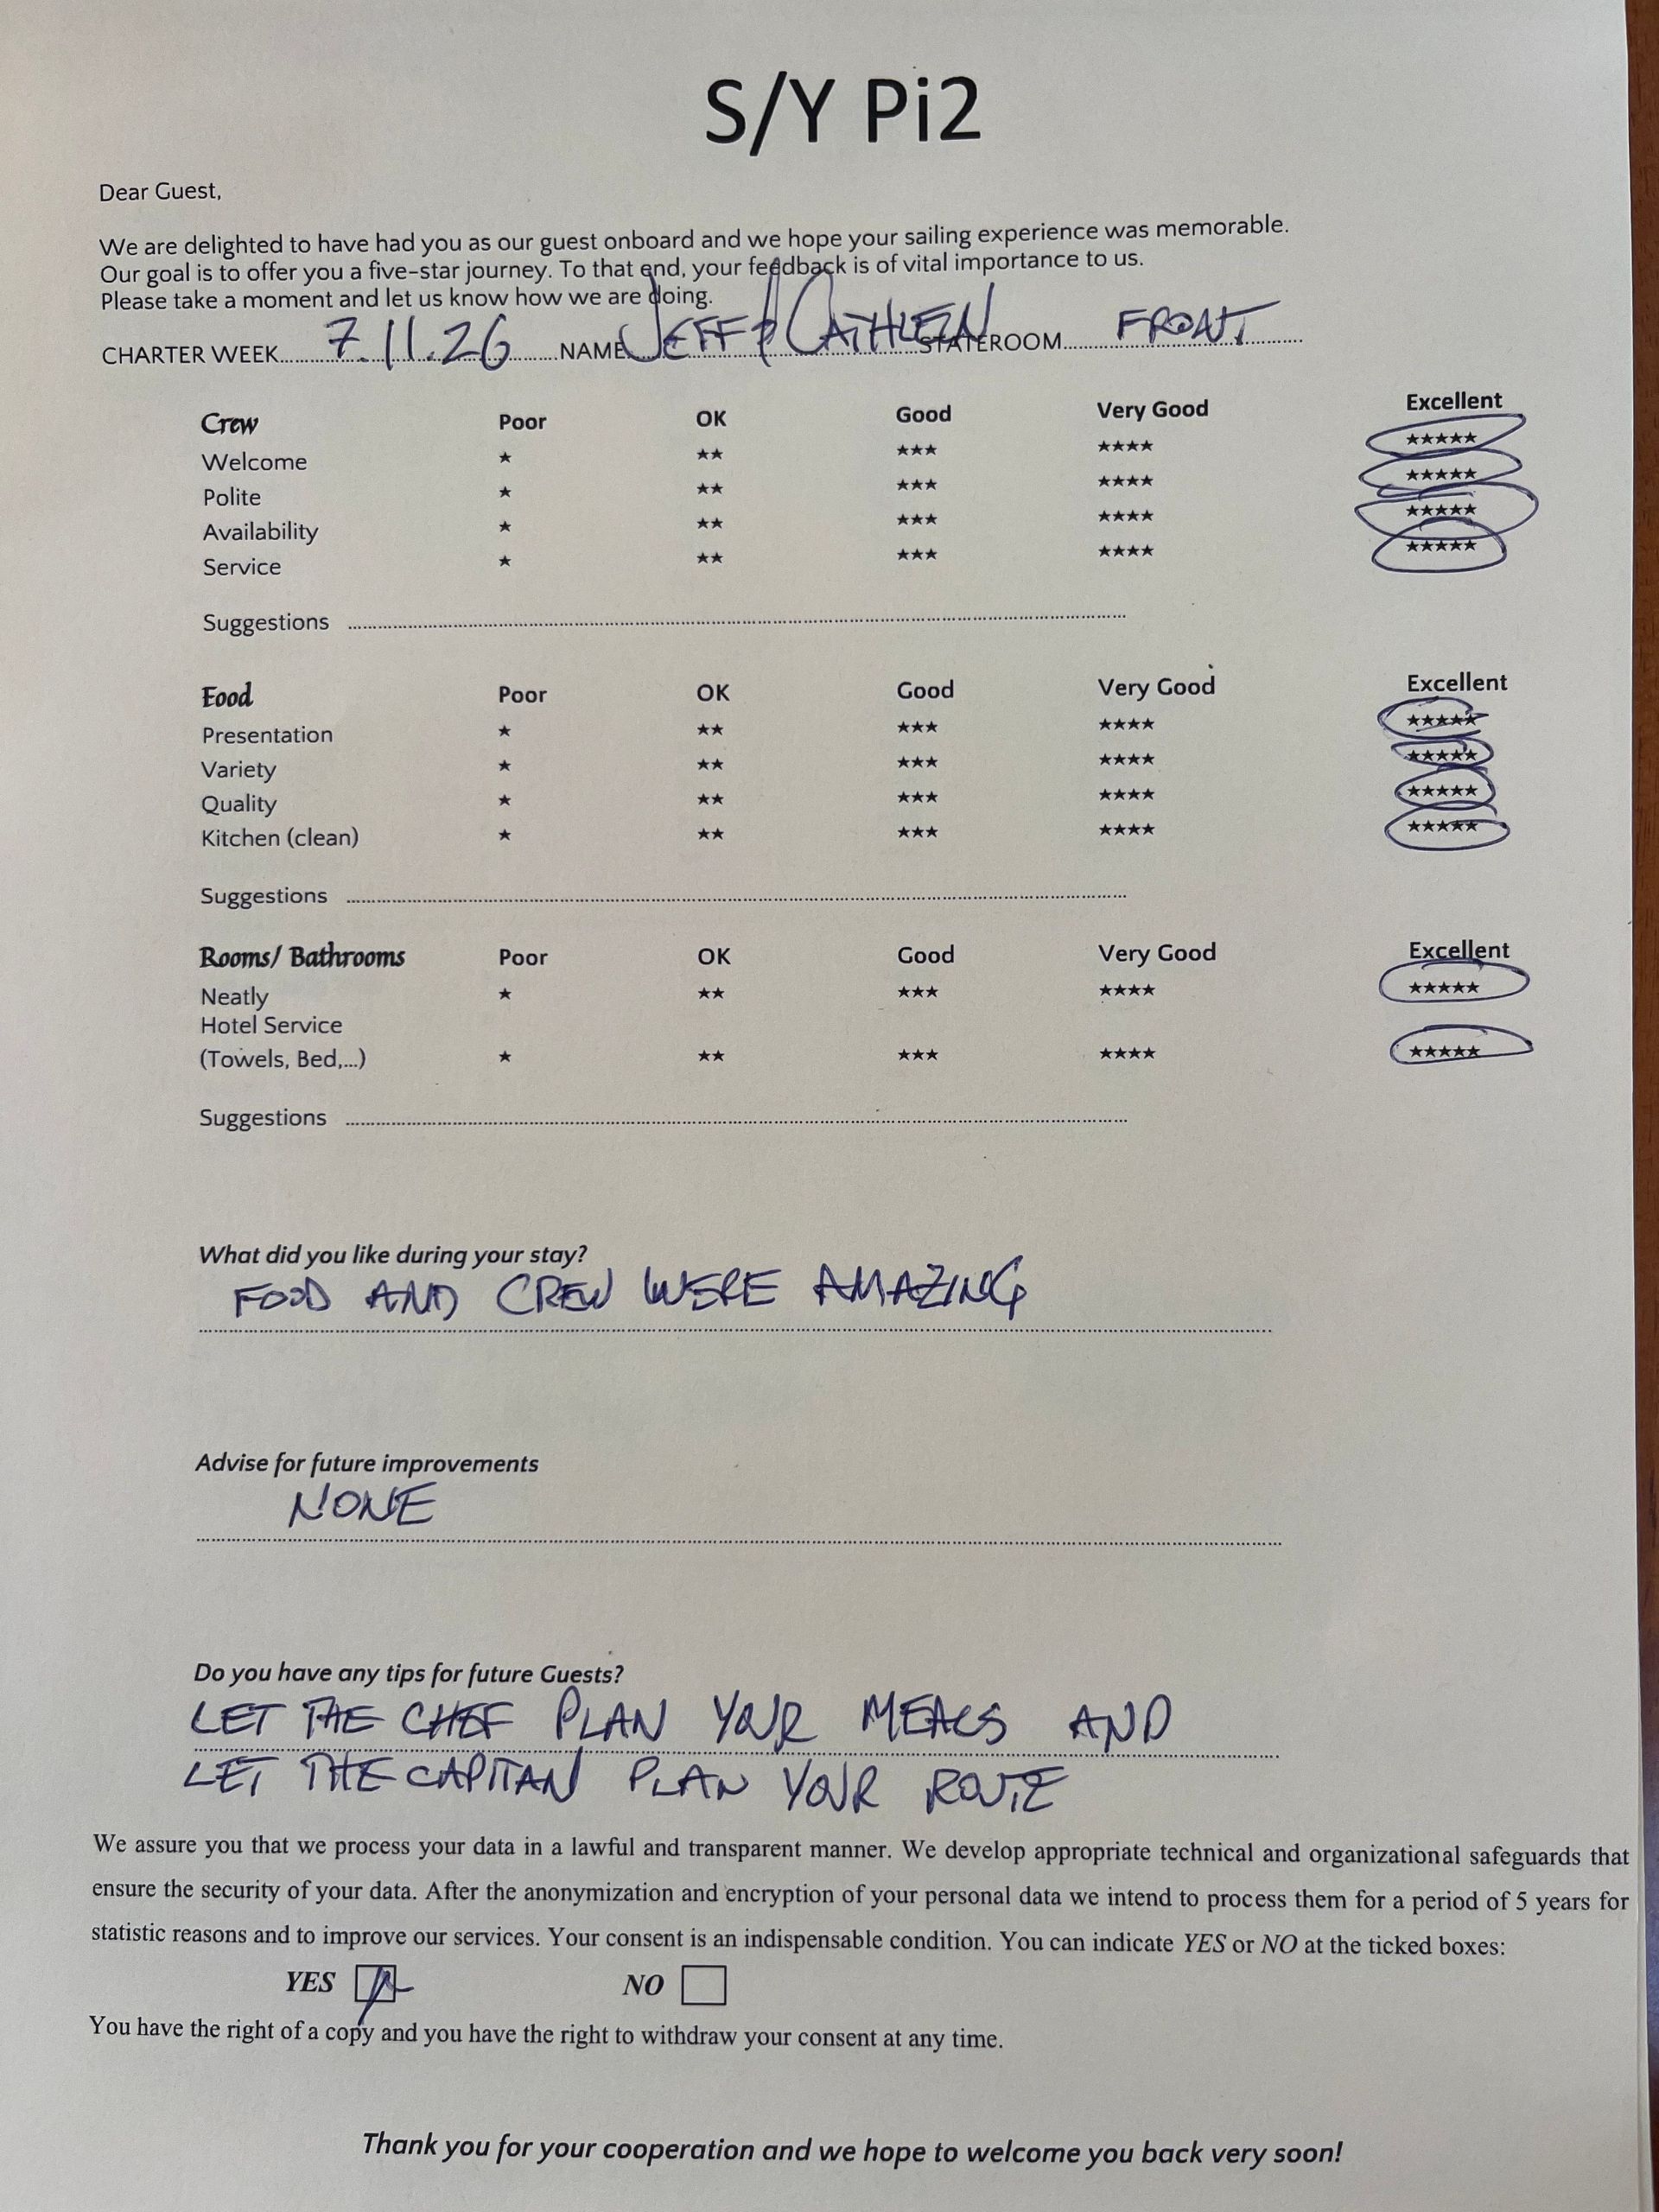 S/Y Pi2
Dear Guest,
We are delighted to have had you as our guest onboard and we hope your sailing experience was memorable.
Our goal is to offer you a five-star journey. To that end, your feedback is of vital importance to us.
Please take a moment and let us know how we are doing.
CHARTER WEEK 7.11.26 NAME JEFF & CATHLEEN STATEROOM FRONT
Crew Poor OK Good Very Good Excellent
Welcome ★ ★★ ★★★ ★★★★ ★★★★★
Polite ★ ★★ ★★★ ★★★★ ★★★★★
Availability ★ ★★ ★★★ ★★★★ ★★★★★
Service ★ ★★ ★★★ ★★★★ ★★★★★
Suggestions
Food Poor OK Good Very Good Excellent
Presentation ★ ★★ ★★★ ★★★★ ★★★★★
Variety ★ ★★ ★★★ ★★★★ ★★★★★
Quality ★ ★★ ★★★ ★★★★ ★★★★★
Kitchen (clean) ★ ★★ ★★★ ★★★★ ★★★★★
Suggestions
Rooms/ Bathrooms Poor OK Good Very Good Excellent
Neatly ★ ★★ ★★★ ★★★★ ★★★★★
Hotel Service
(Towels, Bed,...) ★ ★★ ★★★ ★★★★ ★★★★★
Suggestions
What did you like during your stay?
FOOD AND CREW WERE AMAZING
Advise for future improvements
NONE
Do you have any tips for future Guests?
LET THE CHEF PLAN YOUR MEALS AND
LET THE CAPITAN PLAN YOUR ROUTE
We assure you that we process your data in a lawful and transparent manner. We develop appropriate technical and organizational safeguards that
ensure the security of your data. After the anonymization and encryption of your personal data we intend to process them for a period of 5 years for
statistic reasons and to improve our services. Your consent is an indispensable condition. You can indicate YES or NO at the ticked boxes:
YES NO
You have the right of a copy and you have the right to withdraw your consent at any time.
Thank you for your cooperation and we hope to welcome you back very soon!